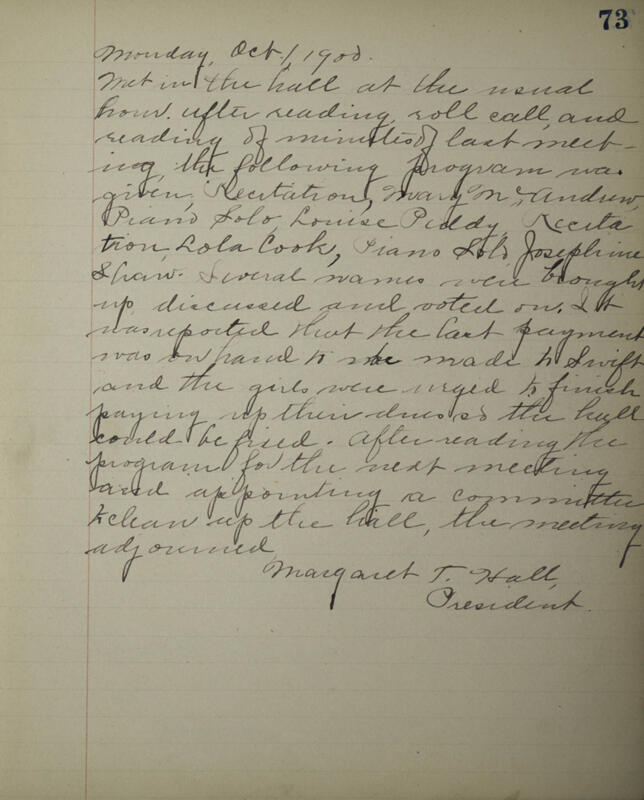 73
Monday, Oct 1, 1900.
Met in the hall at the usual
hour. After reading, roll call, and
reading of minutes of last meet-
ing, the following program was
given, Recitation, Mary Mc Andrew
Piano Solo, Louise Peddy, Recita
tion, Lola Cook, Piano Solo Josephine
Shaw. Several names were brought
up, discussed and voted on. It
was reported that the last payment
was on hand to be made to Swift
and the girls were urged to finish
paying up their dues so the hall
could be fixed. After reading the
program for the next meeting
and appointing a committee
to clean up the hall, the meeting
adjourned,
Margaret T. Hall,
President.